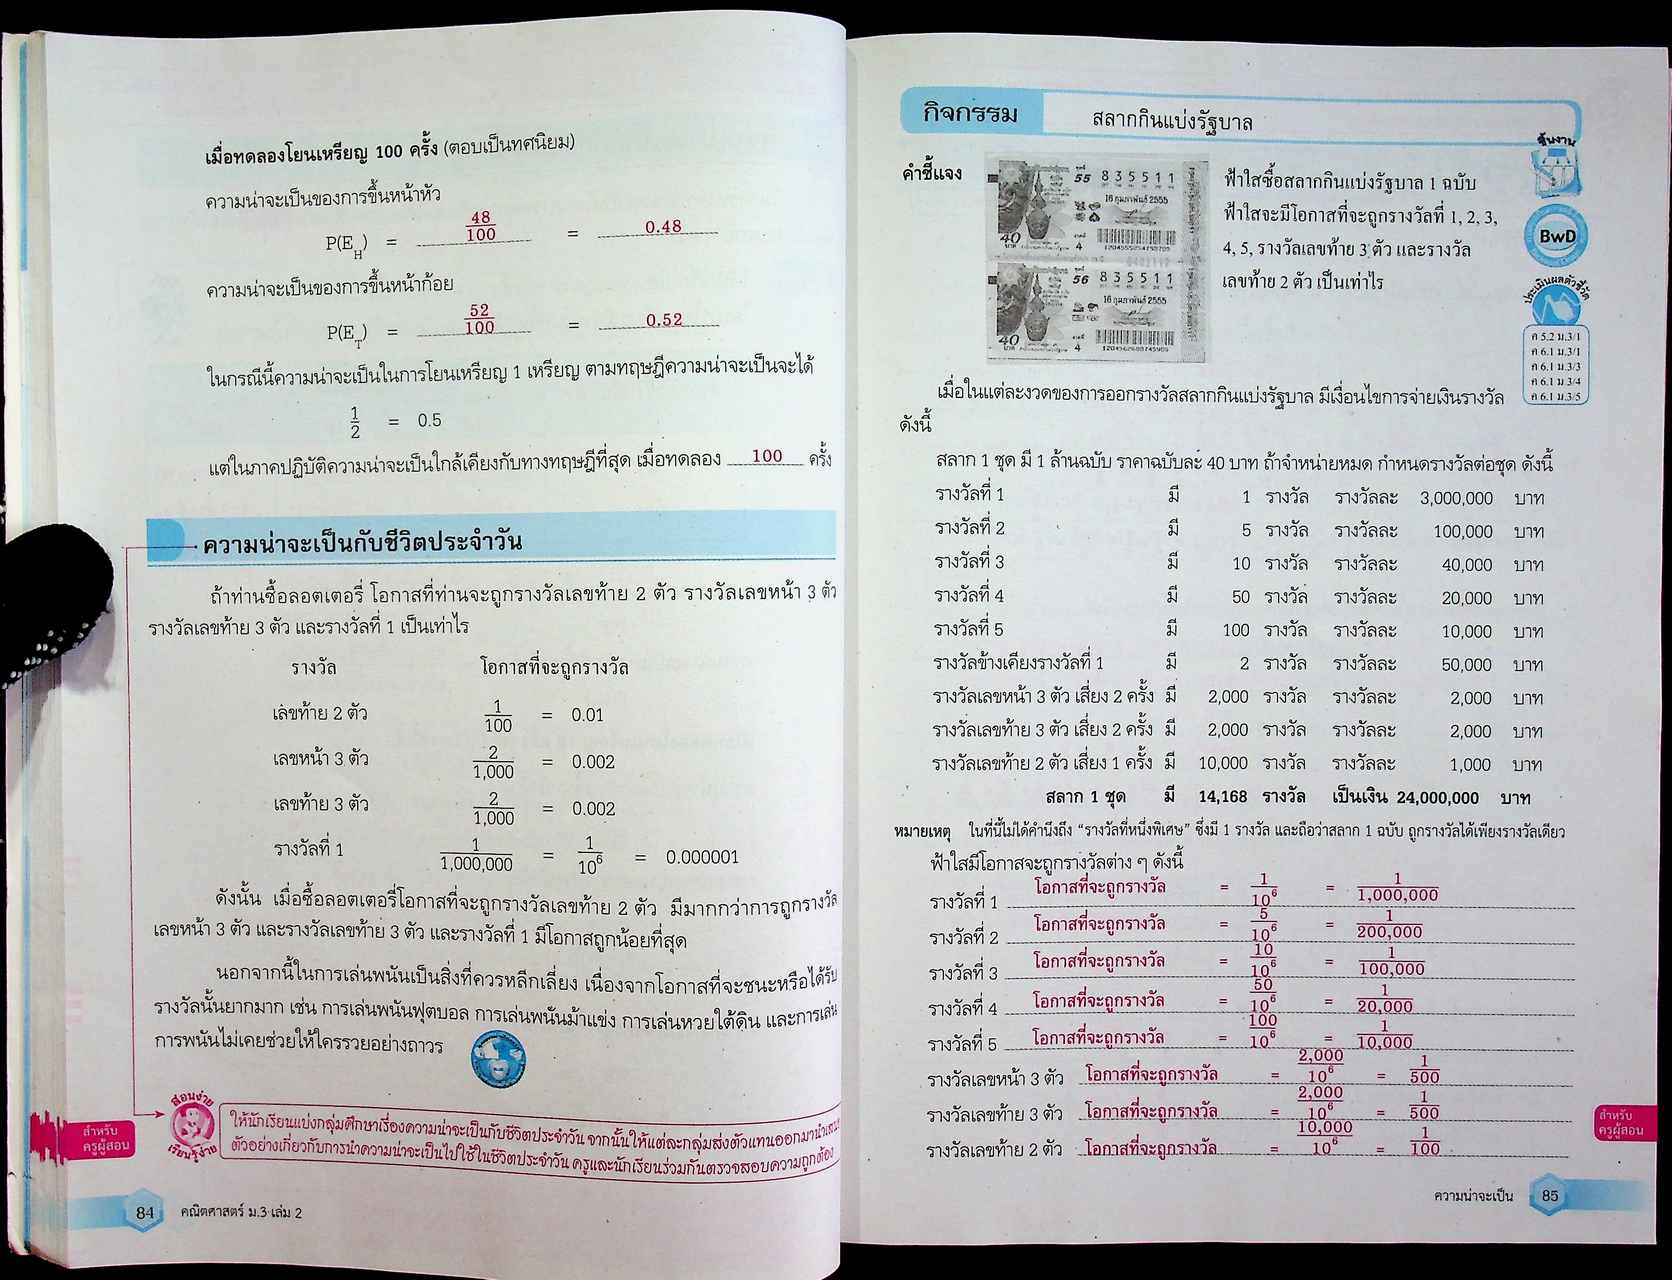 เมื่อทดลองโยนเหรียญ 100 ครั้ง (ตอบเป็นทศนิยม)
ความน่าจะเป็นของการขึ้นหน้าหัว
P(E_H) = 48/100 = 0.48
ความน่าจะเป็นของการขึ้นหน้าก้อย
P(E_T) = 52/100 = 0.52
ในกรณีนี้ความน่าจะเป็นในการโยนเหรียญ 1 เหรียญ ตามทฤษฎีความน่าจะเป็นจะได้
1/2 = 0.5
แต่ในภาคปฏิบัติความน่าจะเป็นใกล้เคียงกับทางทฤษฎีที่สุด เมื่อทดลอง 100 ครั้ง
ความน่าจะเป็นกับชีวิตประจำวัน
ถ้าท่านซื้อลอตเตอรี่ โอกาสที่ท่านจะถูกรางวัลเลขท้าย 2 ตัว รางวัลเลขหน้า 3 ตัว
รางวัลเลขท้าย 3 ตัว และรางวัลที่ 1 เป็นเท่าไร
รางวัล โอกาสที่จะถูกรางวัล
เลขท้าย 2 ตัว 1/100 = 0.01
เลขหน้า 3 ตัว 2/1,000 = 0.002
เลขท้าย 3 ตัว 2/1,000 = 0.002
รางวัลที่ 1 1/1,000,000 = 1/10⁶ = 0.000001
ดังนั้น เมื่อซื้อลอตเตอรี่โอกาสที่จะถูกรางวัลเลขท้าย 2 ตัว มีมากกว่าการถูกรางวัล
เลขหน้า 3 ตัว และรางวัลเลขท้าย 3 ตัว และรางวัลที่ 1 มีโอกาสถูกน้อยที่สุด
นอกจากนี้ในการเล่นพนันเป็นสิ่งที่ควรหลีกเลี่ยง เนื่องจากโอกาสที่จะชนะหรือได้รับ
รางวัลนั้นยากมาก เช่น การเล่นพนันฟุตบอล การเล่นพนันม้าแข่ง การเล่นหวยใต้ดิน และการเล่น
การพนันไม่เคยช่วยให้ใครรวยอย่างถาวร
สำหรับ
ครูผู้สอน
สอนง่าย
เรียนรู้ง่าย
ให้นักเรียนแบ่งกลุ่มศึกษาเรื่องความน่าจะเป็นกับชีวิตประจำวัน จากนั้นให้แต่ละกลุ่มส่งตัวแทนออกมานำเสนอ
ตัวอย่างเกี่ยวกับการนำความน่าจะเป็นไปใช้ในชีวิตประจำวัน ครูและนักเรียนร่วมกันตรวจสอบความถูกต้อง
84 คณิตศาสตร์ ม.3 เล่ม 2
กิจกรรม สลากกินแบ่งรัฐบาล
ชิ้นงาน
BwD
ประเมินผลตัวชี้วัด
ค 5.2 ม.3/1
ค 6.1 ม.3/1
ค 6.1 ม.3/3
ค 6.1 ม.3/4
ค 6.1 ม.3/5
คำชี้แจง
55 835511
16 กุมภาพันธ์ 2555
40
4
56 835511
16 กุมภาพันธ์ 2555
40
4
ฟ้าใสซื้อสลากกินแบ่งรัฐบาล 1 ฉบับ
ฟ้าใสจะมีโอกาสที่จะถูกรางวัลที่ 1, 2, 3,
4, 5, รางวัลเลขท้าย 3 ตัว และรางวัล
เลขท้าย 2 ตัว เป็นเท่าไร
เมื่อในแต่ละงวดของการออกรางวัลสลากกินแบ่งรัฐบาล มีเงื่อนไขการจ่ายเงินรางวัล
ดังนี้
สลาก 1 ชุด มี 1 ล้านฉบับ ราคาฉบับละ 40 บาท ถ้าจำหน่ายหมด กำหนดรางวัลต่อชุด ดังนี้
รางวัลที่ 1 มี 1 รางวัล รางวัลละ 3,000,000 บาท
รางวัลที่ 2 มี 5 รางวัล รางวัลละ 100,000 บาท
รางวัลที่ 3 มี 10 รางวัล รางวัลละ 40,000 บาท
รางวัลที่ 4 มี 50 รางวัล รางวัลละ 20,000 บาท
รางวัลที่ 5 มี 100 รางวัล รางวัลละ 10,000 บาท
รางวัลข้างเคียงรางวัลที่ 1 มี 2 รางวัล รางวัลละ 50,000 บาท
รางวัลเลขหน้า 3 ตัว เสี่ยง 2 ครั้ง มี 2,000 รางวัล รางวัลละ 2,000 บาท
รางวัลเลขท้าย 3 ตัว เสี่ยง 2 ครั้ง มี 2,000 รางวัล รางวัลละ 2,000 บาท
รางวัลเลขท้าย 2 ตัว เสี่ยง 1 ครั้ง มี 10,000 รางวัล รางวัลละ 1,000 บาท
สลาก 1 ชุด มี 14,168 รางวัล เป็นเงิน 24,000,000 บาท
หมายเหตุ ในที่นี้ไม่ได้คำนึงถึง “รางวัลที่หนึ่งพิเศษ” ซึ่งมี 1 รางวัล และถือว่าสลาก 1 ฉบับ ถูกรางวัลได้เพียงรางวัลเดียว
ฟ้าใสมีโอกาสจะถูกรางวัลต่าง ๆ ดังนี้
รางวัลที่ 1 โอกาสที่จะถูกรางวัล = 1/10⁶ = 1/1,000,000
รางวัลที่ 2 โอกาสที่จะถูกรางวัล = 5/10⁶ = 1/200,000
รางวัลที่ 3 โอกาสที่จะถูกรางวัล = 10/10⁶ = 1/100,000
รางวัลที่ 4 โอกาสที่จะถูกรางวัล = 50/10⁶ = 1/20,000
รางวัลที่ 5 โอกาสที่จะถูกรางวัล = 100/10⁶ = 1/10,000
รางวัลเลขหน้า 3 ตัว โอกาสที่จะถูกรางวัล = 2,000/10⁶ = 1/500
รางวัลเลขท้าย 3 ตัว โอกาสที่จะถูกรางวัล = 2,000/10⁶ = 1/500
รางวัลเลขท้าย 2 ตัว โอกาสที่จะถูกรางวัล = 10,000/10⁶ = 1/100
สำหรับ
ครูผู้สอน
ความน่าจะเป็น 85